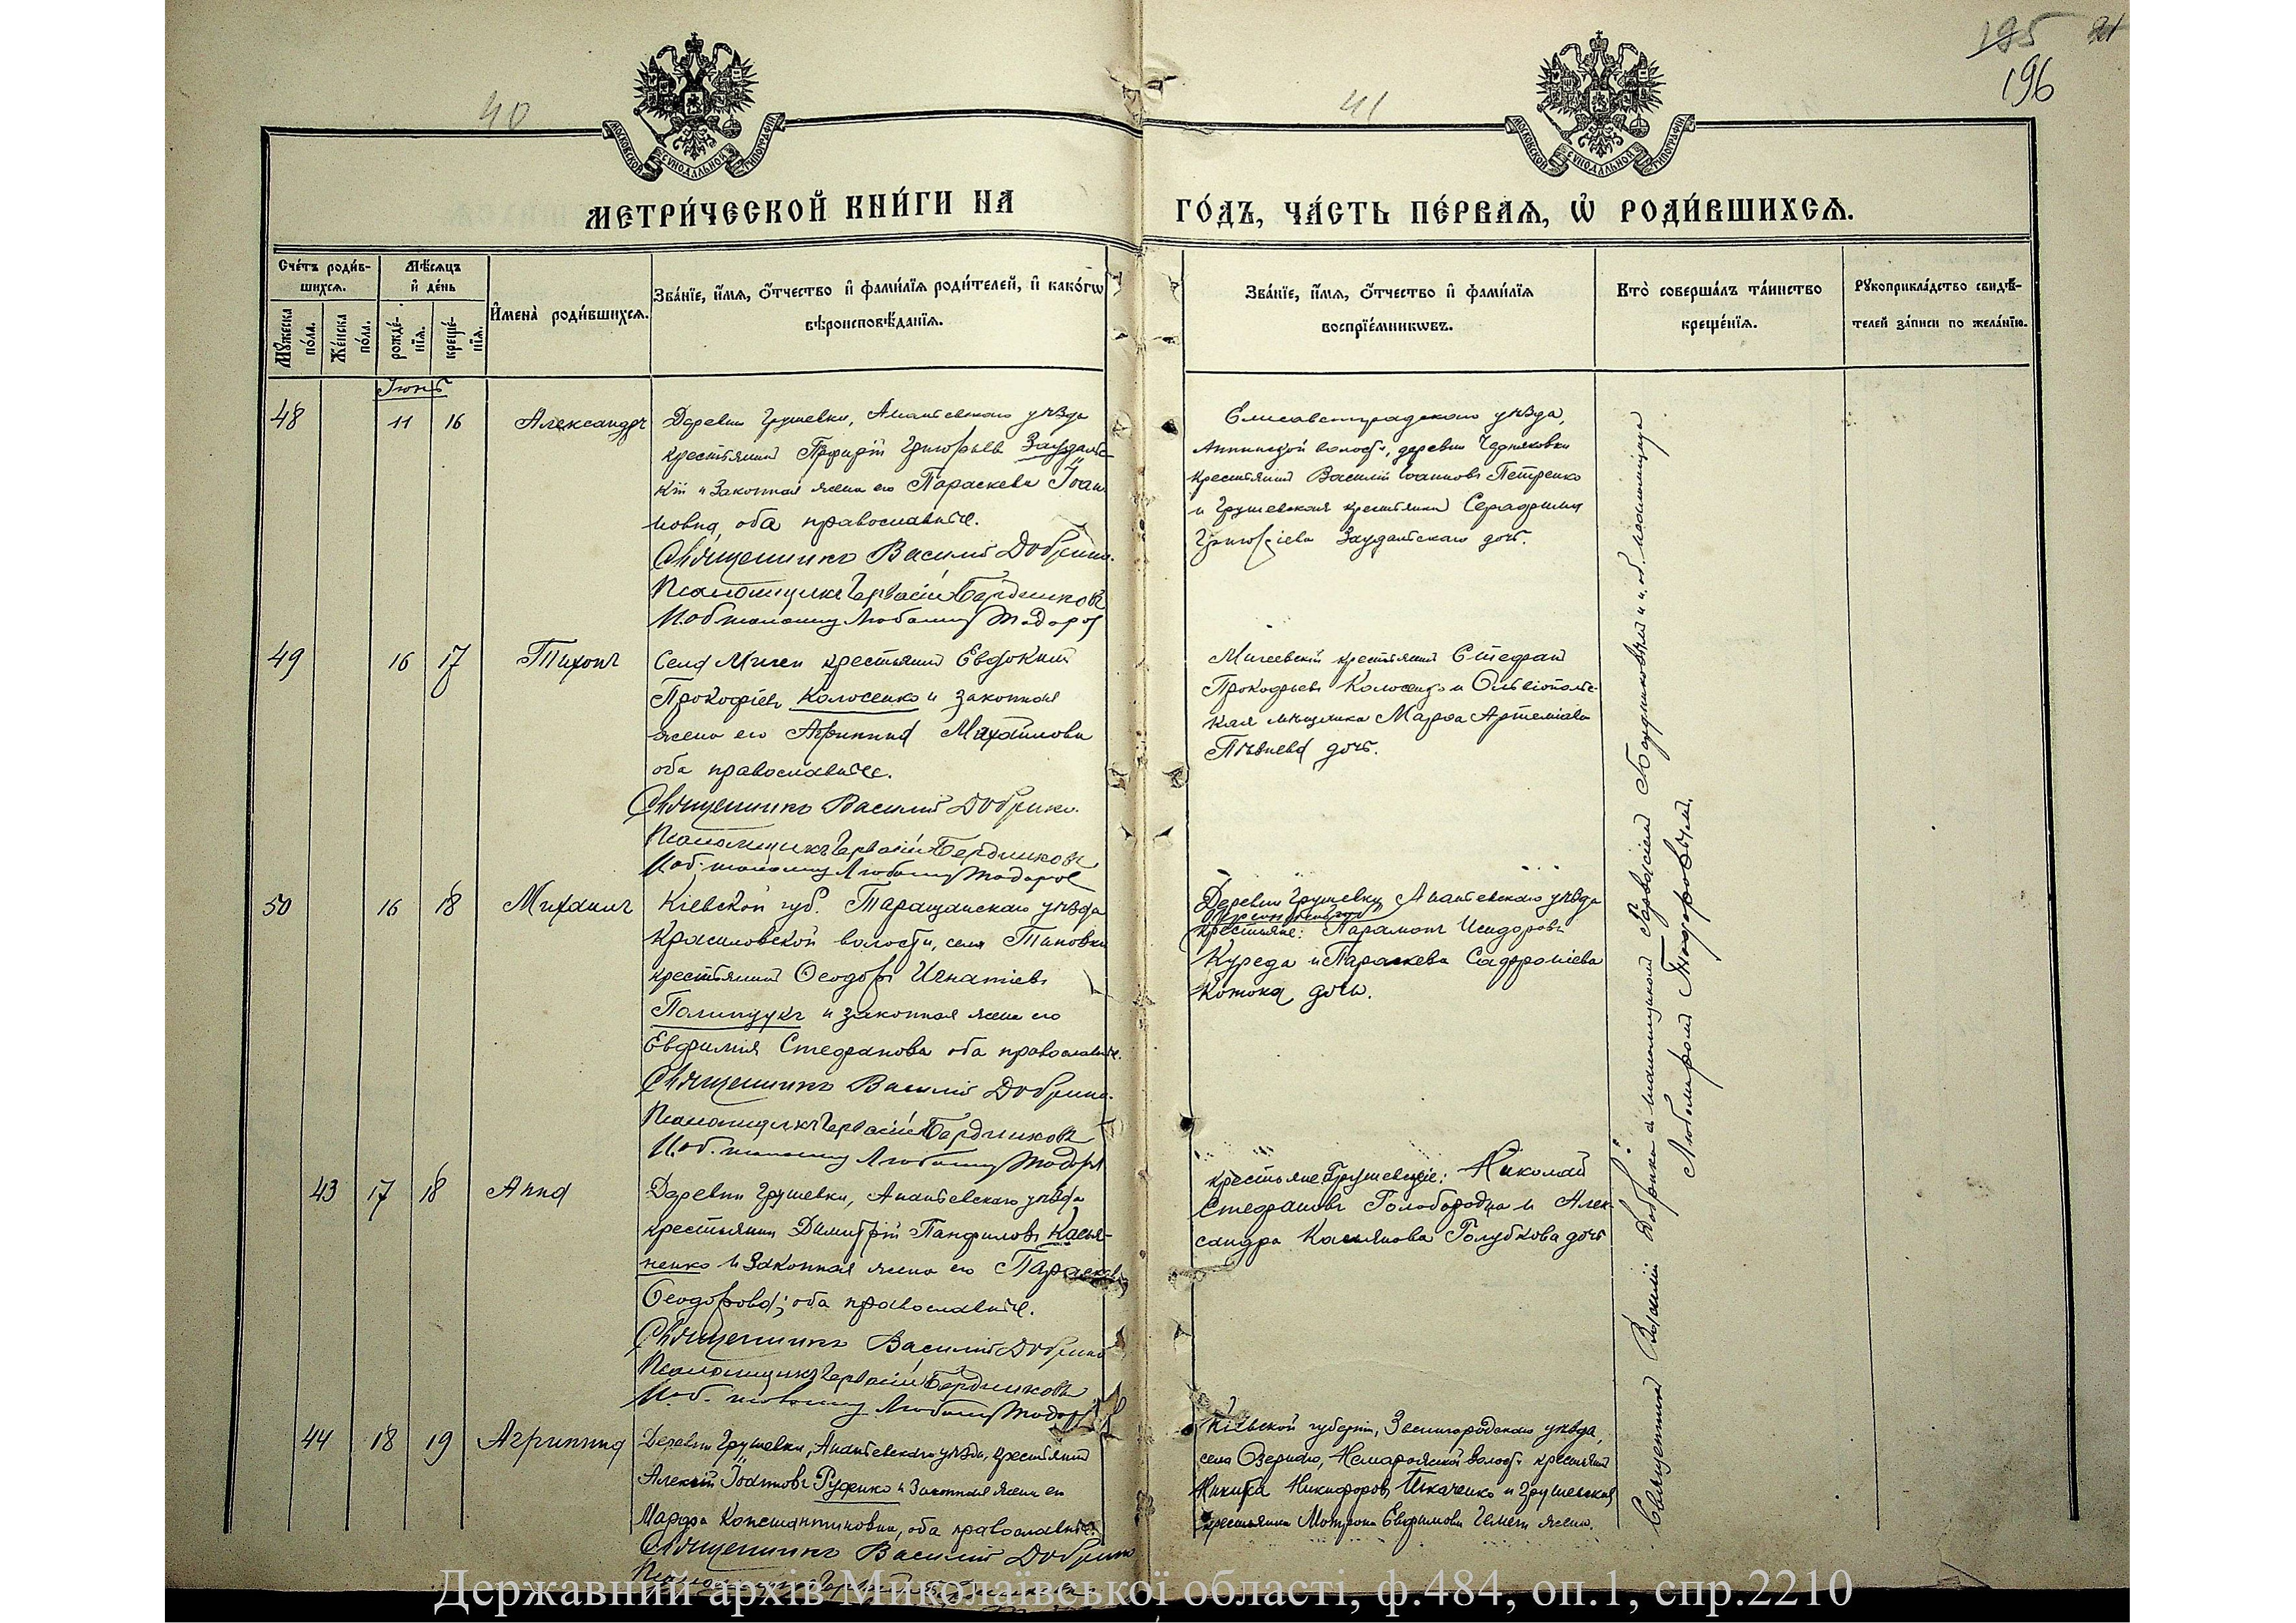 195
196
40
41
МОСКОВСКОЙ СѴНОДАЛЬНОЙ ТИПОГРАФІИ
МОСКОВСКОЙ СѴНОДАЛЬНОЙ ТИПОГРАФІИ
МЕТРИ́ЧЕСКОЙ КНИ́ГИ НА
ГО́ДЪ, ЧА́СТЬ ПЕ́РВАѦ, Ѡ РОДИ́ВШИХСѦ.
Сче́тъ роди́в-
шихсѧ.
Мѣ́сѧцъ
и де́нь
Мꙋ́жеска по́ла.
Же́нска по́ла.
рожде́-
нїѧ.
креще́-
нїѧ.
Имена̀ роди́вшихсѧ.
Зва́нїе, и́мѧ, ѻ́тчество и фами́лїѧ роди́телей, и како́гѡ
вѣроисповѣ́данїѧ.
Зва́нїе, и́мѧ, ѻ́тчество и фами́лїѧ
воспрїе́мникѡвъ.
Кто̀ соверша́лъ та́инство
креще́нїѧ.
Рꙋкоприкла́дство свидѣ́-
телей за́писи по жела́нїю.
Іюнь
48 11 16 Александръ
Деревни Грушевки, Ананьевскаго уѣзда
крестьянинъ Порфирій Григорьевъ Заудальс-
кій и законная жена его Параскева Іоан
новна, оба православные.
Священникъ Василій Добринко.
Псаломщикъ Гервасій Бердниковъ
И. об. псаломщ. Любомиръ Тодоров
Елисаветградскаго уѣзда,
Аннинской волости, деревни Черняховки
крестьянинъ Василій Іоанновъ Петренко
и Грушевская крестьянка Серафима
Григоріева Заудальскаго дочь.
49 16 17 Тихонъ
Села Мигеи крестьянинъ Евдокимъ
Прокофіевъ Колосенко и законная
жена его Агриппина Михайлова
оба православные.
Священникъ Василій Добринко.
Псаломщикъ Гервасій Бердниковъ
И. об. псаломщ. Любомиръ Тодоров
Мигеевскій крестьянинъ Стефанъ
Прокофьевъ Колосенко и Ольвіопольс-
кая мѣщанка Марѳа Артеміева
дочь.
50 16 18 Михаилъ
Кіевской губ. Таращанскаго уѣзда
Красиловской волости, села Тиновки
крестьянинъ Ѳеодоръ Игнатіевъ
Полищукъ и законная жена его
Евфимія Стефанова оба православные.
Священникъ Василій Добринко.
Псаломщикъ Гервасій Бердниковъ
И. об. псаломщ. Любомиръ Тодоров
Деревни Грушевки, Ананьевскаго уѣзда
крестьяне: Парамонъ Исидоровъ
Куреда и Параскева Сафроніева
Котока дочь.
43 17 18 Анна
Деревни Грушевки, Ананьевскаго уѣзда
крестьянинъ Димитрій Панфиловъ Касья-
ненко и законная жена его Параскева
Ѳеодорова; оба православные.
Священникъ Василій Добринко
Псаломщикъ Гервасій Бердниковъ
И. об. псаломщ. Любомиръ Тодоров
крестьяне Грушевскіе: Николай
Стефановъ Голобородько и Алек-
сандра Касьянова Голубкова дочь
44 18 19 Агриппина
Деревни Грушевки, Ананьевскаго уѣзда, крестьянинъ
Алексѣй Іоанновъ Руденко и законная жена его
Марѳа Константиновна, оба православные.
Священникъ Василій Добринко
Кіевской губерніи, Звенигородскаго уѣзда,
села Озирно, волости крестьянинъ
Никита Никифоровъ Ткаченко и Грушевская
крестьянка Мотрона Евфимова жена.
Священникъ Василій Добринко и псаломщикомъ Гервасіемъ Бердниковымъ и и. об. псаломщика
Любомиромъ Тодоровымъ.
Державний архів Миколаївської області, ф.484, оп.1, спр.2210